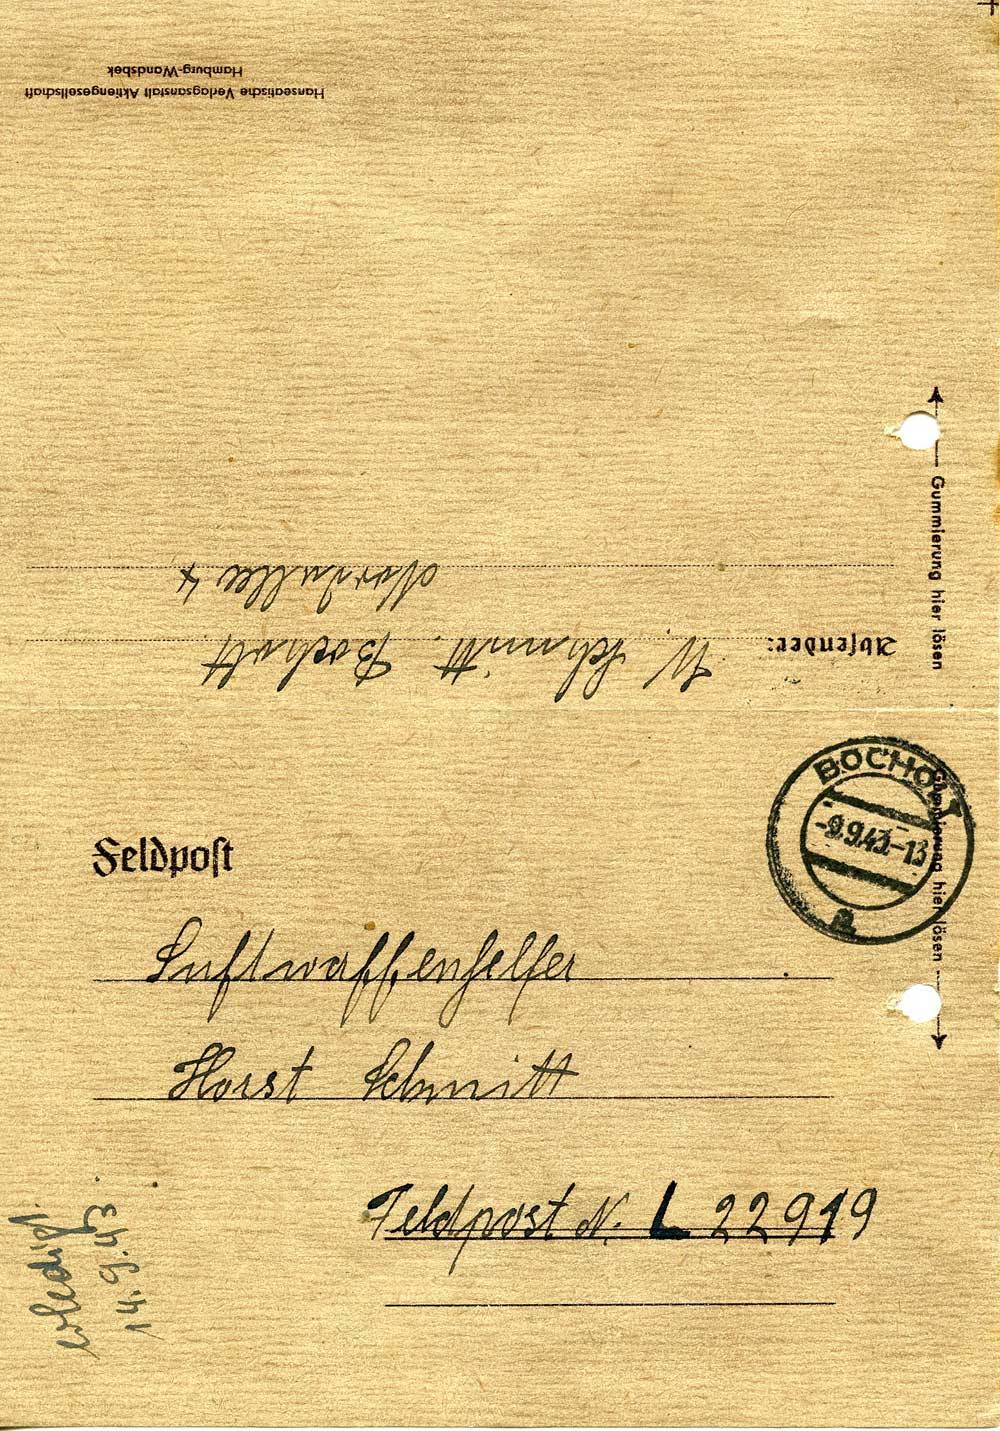 Hanseatische Verlagsanstalt Aktiengesellschaft
Hamburg-Wandsbek
Gummierung hier lösen
Absender: W. Schmitt. Bocholt
Nordallee 4
BOCHOLT
-9.9.43.-13
a
Gummierung hier lösen
Feldpost
Luftwaffenhelfer
Horst Schmitt
Feldpost N. L 22919
erledigt.
14.9.43